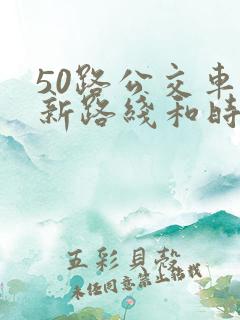 50路公交车
新路线和时
五彩貝殼
未经同意禁止转载